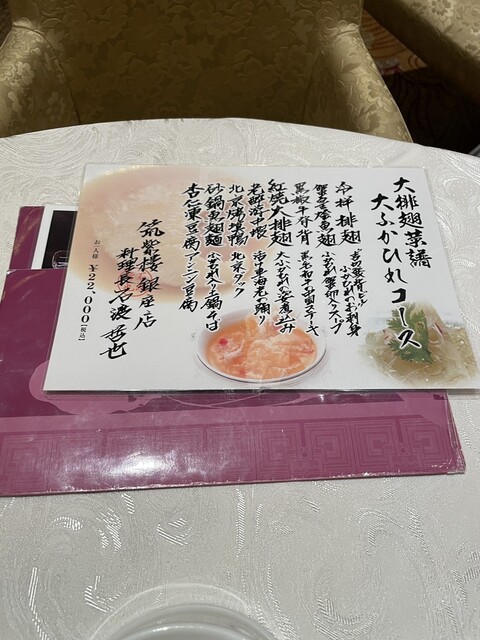 大排翅菜譜
大ふかひれコース
冷拌排翅 吉切鮫背ビレ ふかひれのお刺身
蟹黄燴魚翅 ふかひれ蟹卵入スープ
黒椒牛脊背 黒毛和牛の
紅焼大排翅 大ふかひれの姿煮込み
老酢活中蝦 活け車海老の踊り
北京烤鴨 北京ダック
砂鍋魚翅麺 ふかひれ入り鍋そば
杏仁凍豆腐 アンニン豆腐
筑紫樓 銀座店
料理長 石渡 哲也
お一人様 ¥22,000【税込】